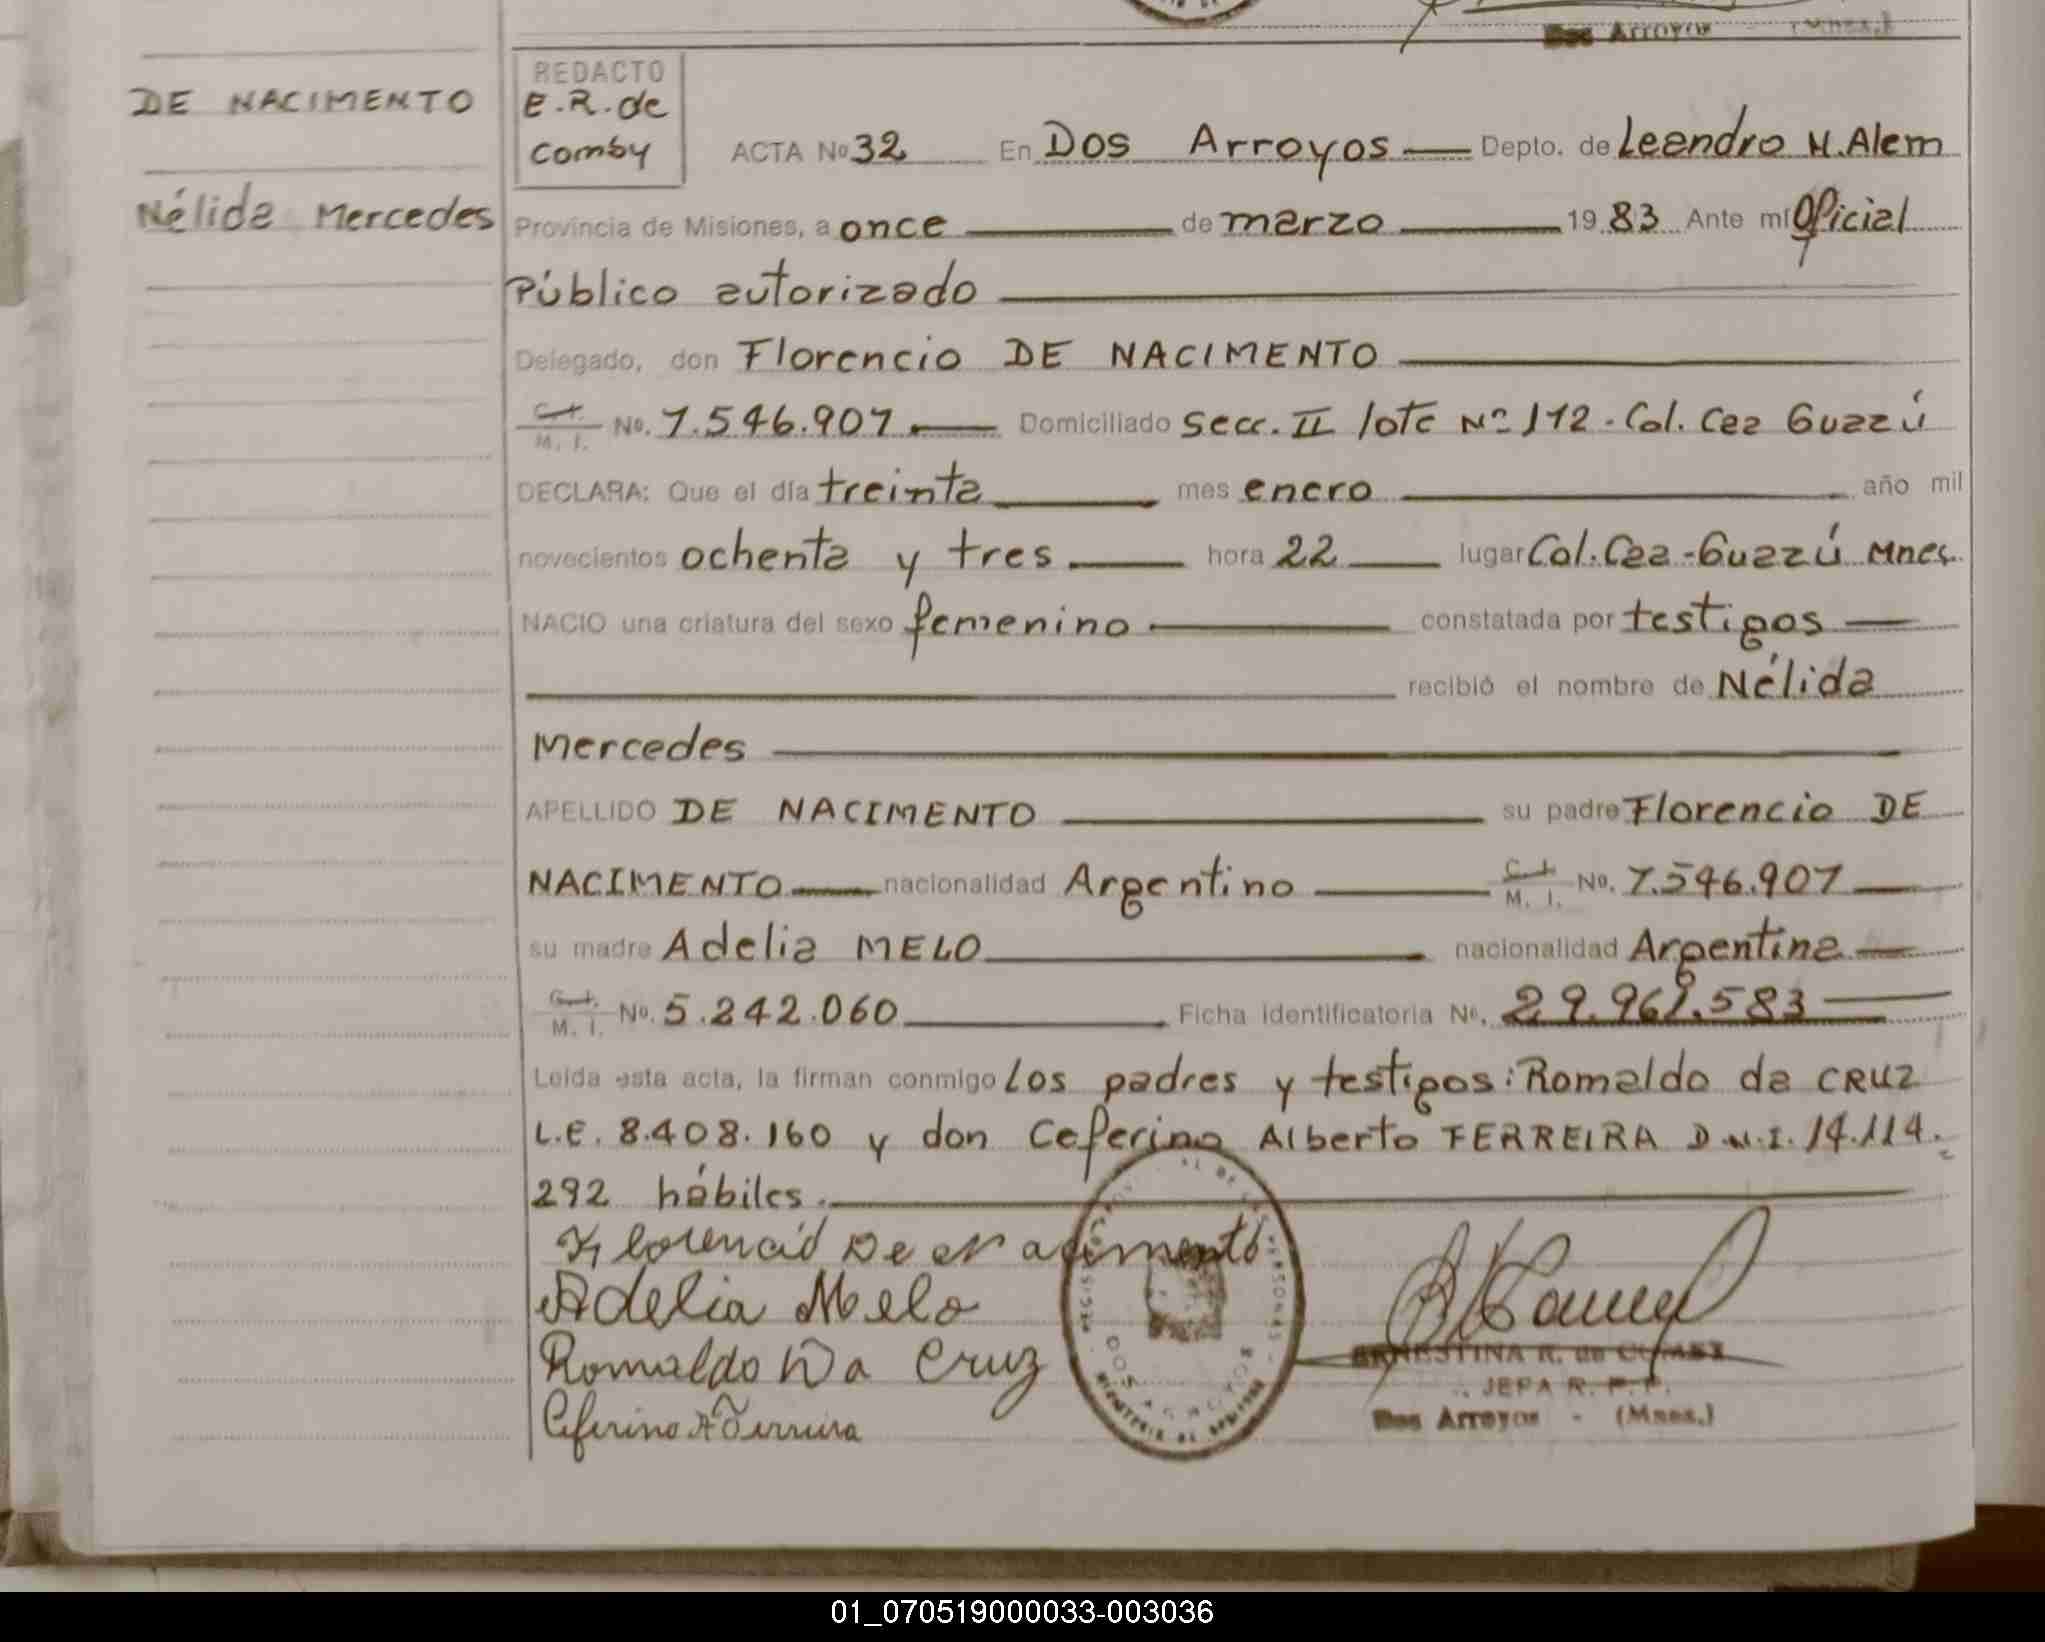 Dos Arroyos (Mnes.)
DE NACIMENTO
Nélida Mercedes
REDACTO
E.R. de
Comby
ACTA No 32 En Dos Arroyos Depto. de Leandro N. Alem
Provincia de Misiones, a once de marzo 1983 Ante mí Oficial
Público autorizado
Delegado, don Florencio DE NACIMENTO
C.I. M. I. No. 7.546.907 Domiciliado Secc. II lote Nº 112 - Col. Caa Guazú
DECLARA: Que el día treinta mes enero año mil
novecientos ochenta y tres hora 22 lugar Col. Caa-Guazú Mnes.
NACIO una criatura del sexo femenino constatada por testigos
recibió el nombre de Nélida
Mercedes
APELLIDO DE NACIMENTO su padre Florencio DE
NACIMENTO nacionalidad Argentino C.I. M. I. No. 7.546.907
su madre Adelia MELO nacionalidad Argentina
C.I. M. I. No. 5.242.060 Ficha identificatoria No. 583
Leída esta acta, la firman conmigo los padres y testigos: Romaldo da CRUZ
L.E. 8.408.160 y don Ceferino Alberto FERREIRA D.N.I. 14.114.
292 hábiles.
Florencio De Nacimento
Adelia Melo
Romaldo Da Cruz
Ceferino A Ferreira
DOS ARROYOS
ERNESTINA R. de COMBY
JEFA R. P. P.
Dos Arroyos - (Mnes.)
01_070519000033-003036